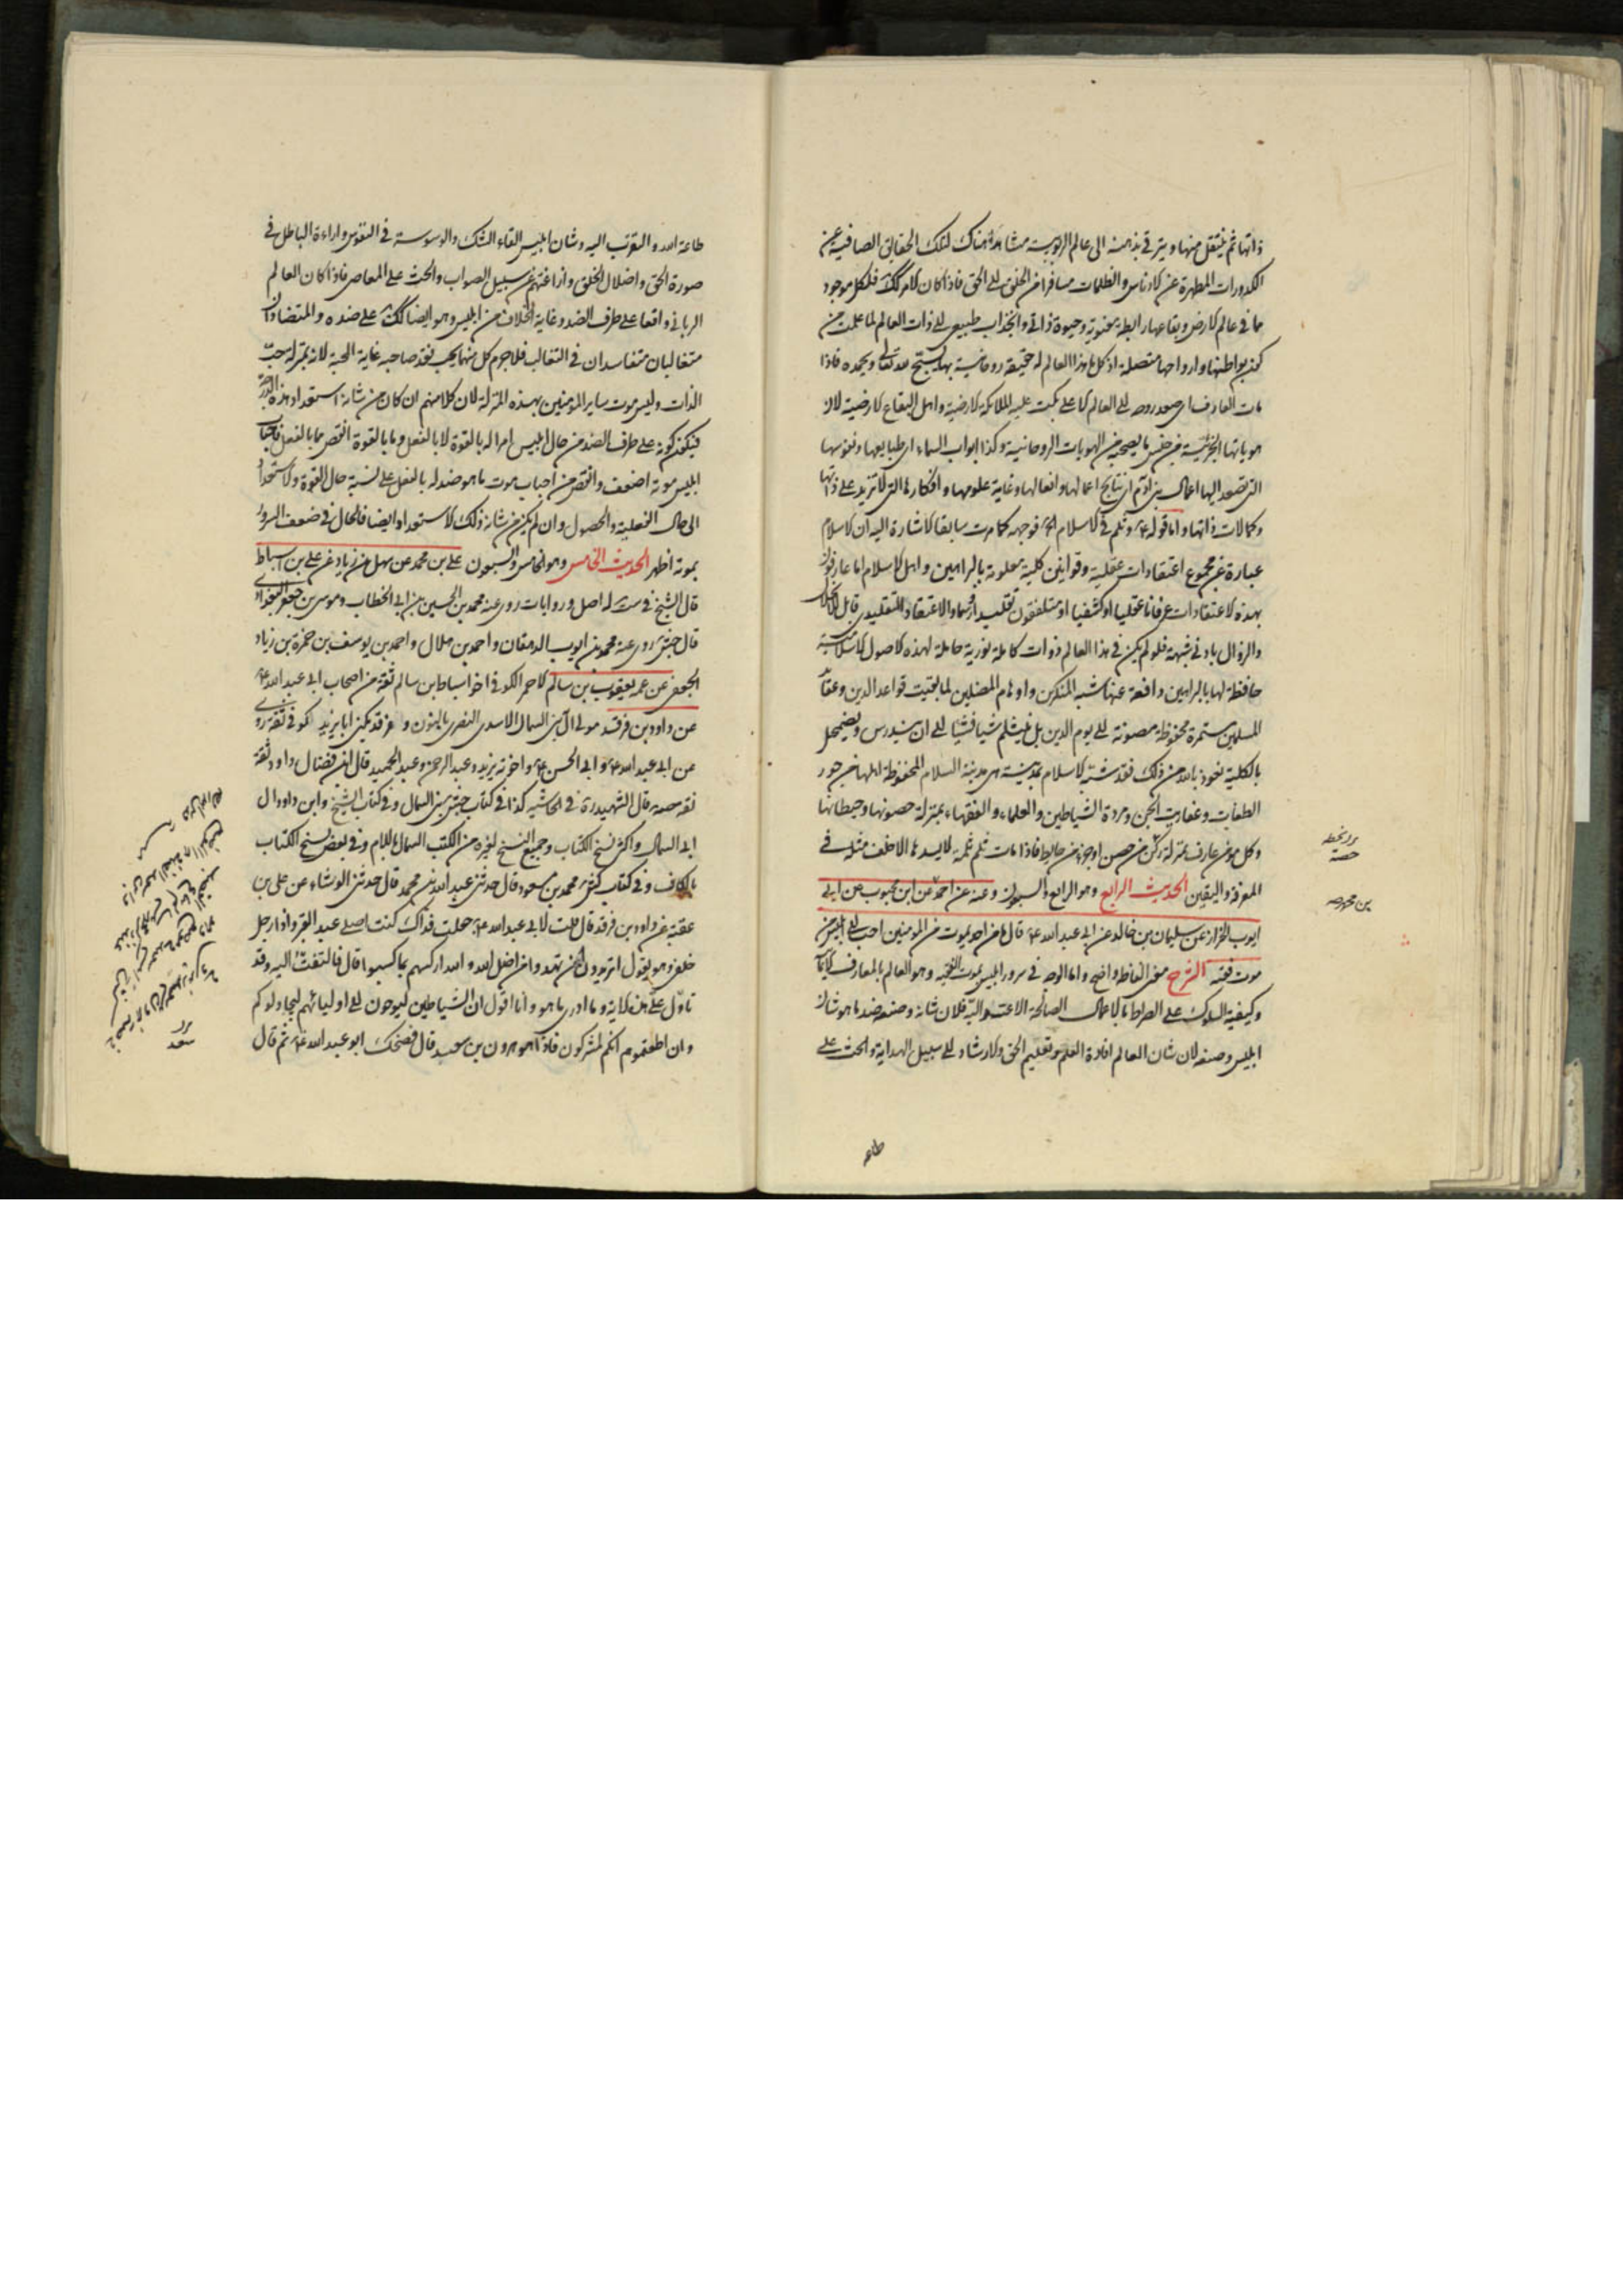 ذاتها ثم ينتقل منها ويترقى بذهنه الى عالم الربوبية مشاهدة هناك لتلك الحقايق الصافية عن
الكدورات المطهرة عن الادناس والظلمات مسافرا من الخلق الى الحق فاذا كان الامر كك فلكل موجود
مما في عالم الارض وبقاعها رابطة معنوية وحيوة ذاتية وانجذاب طبيعي الى ذات العالم لما علمت من
كون بواطنها وارواحها متصلة اذ كل ما في هذا العالم له حقيقة روحانية بها يسبح لله تعالى ويحمده فاذا
مات العارف اي صعد روحه الى العالم الاعلى بكت عليه الملائكة الارضية واهل البقاع الارضية لان
هوياتها الجزئية من جنس ما يصحبه من الهويات الروحانية وكذا ابواب السماء اي طبايعها ونفوسها
التي تصعد اليها اعمال بني آدم اي نتايج اعمالها وافعالها وغاية علومها وافكارها التي لا تزيد على ذاتها
وكمالات ذاتها واما قوله ع وثلم في الاسلام الخ فوجهه كما مرت سابقا الاشارة اليه ان الاسلام
عبارة عن مجموع اعتقادات عقلية وقوانين كلية معلومة بالبراهين واهل الاسلام اما عارفون
بهذه الاعتقادات عرفانا عقليا او كشفيا او متلقفون تقليدا وسماعا والاعتقاد التقليدي قابل للانحلال
والزوال بادنى شبهة فلو لم يكن في هذا العالم ذوات كاملة نورية حاملة لهذه الاصول الاسلامية
حافظة لها بالبراهين دافعة عنها شبه المنكرين واوهام المضلين لما بقيت قواعد الدين وعقايد
المسلمين مستمرة محفوظة مصونة الى يوم الدين بل ينثلم شيئا فشيئا الى ان يندرس ويضمحل
بالكلية نعوذ بالله من ذلك فقد شبه الاسلام بمدينة هي مدينة السلام المحفوظة اهلها من جور
الطغاة وعفاريت الجن ومردة الشياطين والعلماء والفقهاء بمنزلة حصونها وحيطانها
وكل مومن عارف بمنزلة ركن من حصن او جزء من حايط فاذا مات ثلم ثلمة لا يسدها الا خلف مثله في
المعرفة واليقين الحديث الرابع وهو الرابع والسبعون وعنه عن احمد عن ابن محبوب عن ابي
ايوب الخزاز عن سليمان بن خالد عن ابي عبد الله ع قال ما من احد يموت من المومنين احب الى ابليس من
موت فقيه الشرح معنى الفاظه واضح واما الوجه في سرور ابليس بموت الفقيه وهو العالم بالمعارف
وكيفية السلوك على الصراط بالاعمال الصالحة فلان شانه وصنعه ضد ما هو شان
ابليس وصنعه لان شان العالم افادة العلم وتعليم الحق والارشاد الى سبيل الهداية والحث على
طاعه
بن محمد صه
طاعة الله والتقرب اليه وشان ابليس القاء الشك والوسوسة في النفوس واراءة الباطل في
صورة الحق واضلال الخلق وازاغتهم عن سبيل الصواب والحث على المعاصي فاذا كان العالم
الرباني واقعا على طرف الضد وغاية الخلاف من ابليس وهو ايضا كك على ضده والمتضادان
متغالبان متفاسدان في التغالب فلا جرم كل منهما يحب فقد صاحبه غاية المحبة لانه بمنزلة حب
الذات وليس موت ساير المؤمنين بهذه المنزلة لان كلا منهم ان كان من شانه استعداد هذه الدرجة
فيكون كونه على طرف الضد من حال ابليس امرا له بالقوة لا بالفعل وما بالقوة انقص مما بالفعل
ابليس موته اضعف وانقص من احباب موت ما هو ضد له بالفعل على نسبة حال القوة والاستعداد
الى حال الفعلية والحصول وان لم يكن من شانه ذلك الاستعداد ايضا فالحال في ضعف السرور
بموته اظهر الحديث الخامس وهو الخامس والسبعون علي بن محمد عن سهل بن زياد عن علي بن اسباط
قال الشيخ في ست له اصل وروايات روى عنه محمد بن الحسين بن ابي الخطاب وموسى بن جعفر البغدادي
قال جش روى عنه محمد بن ايوب الدهقان واحمد بن هلال واحمد بن يوسف بن حمزة بن زياد
الجعفي عن عمه يعقوب بن سالم الاحمر الكوفي اخو اسباط بن سالم ثقة من اصحاب ابي عبد الله ع
عن داود بن فرقد مولى آل بني السمال الاسدي النصري بالنون وفرقد يكنى ابا يزيد كوفي ثقة روى
عن ابي عبد الله ع وابي الحسن ع واخوته يزيد وعبد الرحمن وعبد الحميد قال ابن فضال داود ثقة
ثقة صه قال الشهيد ره في الحاشيه كذا في كتاب جش بني السمال وفي كتاب الشيخ وابن داود آل
ابي السمال واكثر نسخ الكتاب وجميع النسخ لغيره من الكتب السمال باللام وفي بعض نسخ الكتاب
بالكاف وفي كتاب كش محمد بن مسعود قال حدثني عبد الله بن محمد قال حدثني الوشاء عن علي بن
عقبة عن داود بن فرقد قال قلت لابي عبد الله ع جعلت فداك كنت اصلي عند القبر واذا رجل
خلفي وهو يقول اتريدون ان تهدوا من اضل الله والله اركسهم بما كسبوا قال فالتفت اليه وقد
تاول علي هذه الاية وما ادري ما هو وانا اقول ان الشياطين ليوحون الى اوليائهم ليجادلوكم
وان اطعتموهم انكم لمشركون فاذا هو هرون بن سعيد قال فضحك ابو عبد الله ع ثم قال